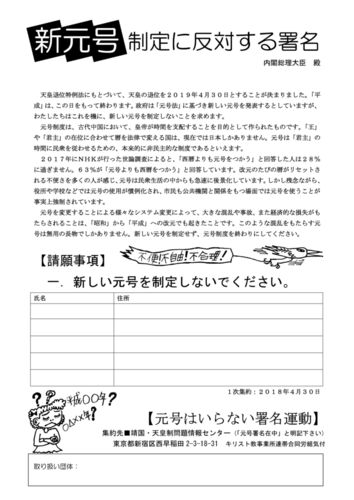 新元号制定に反対する署名
内閣総理大臣　殿
天皇退位特例法にもとづいて、天皇の退位を２０１９年４月３０日とすることが決まりました。「平
成」は、この日をもって終わります。政府は「元号法」に基づき新しい元号を発表するとしていますが、
わたしたちはこれを機に、新しい元号を制定しないことを求めます。
元号制度は、古代中国において、皇帝が時間を支配することを目的として作られたものです。「王」
や「君主」の在位に合わせて暦を法律で変える国は、現在では日本しかありません。元号は「君主」の
時間に民衆を従わせるための、本来的に非民主的な制度であるといえます。
２０１７年にＮＨＫが行った世論調査によると、「西暦よりも元号をつかう」と回答した人は２８％
に過ぎません。６３％が「元号よりも西暦をつかう」と回答しています。改元のたびの暦がリセットさ
れる不便さを多くの人が感じ、元号は民衆生活の中からも急速に後景化しています。しかし残念ながら、
役所や学校などでは元号の使用が慣例化され、市民も公共機関と関係をもつ場面では元号を使うことが
事実上強制されています。
元号を変更することによる様々なシステム変更によって、大きな混乱や事故、また経済的な損失がも
たらされることは、「昭和」から「平成」への改元でも起きたことです。このような混乱をもたらす元
号は無用の長物でしかありません。新しい元号を制定せず、元号制度を終わりにしてください。
【請願事項】
不便!不自由!不合理!
一．新しい元号を制定しないでください。
氏名　住所
１次集約：２０１８年４月３０日
平成〇〇年?
△△××年?
【元号はいらない署名運動】
集約先■靖国・天皇制問題情報センター（「元号署名在中」と明記下さい）
東京都新宿区西早稲田 2-3-18-31　キリスト教事業所連帯合同労組気付
取り扱い団体：